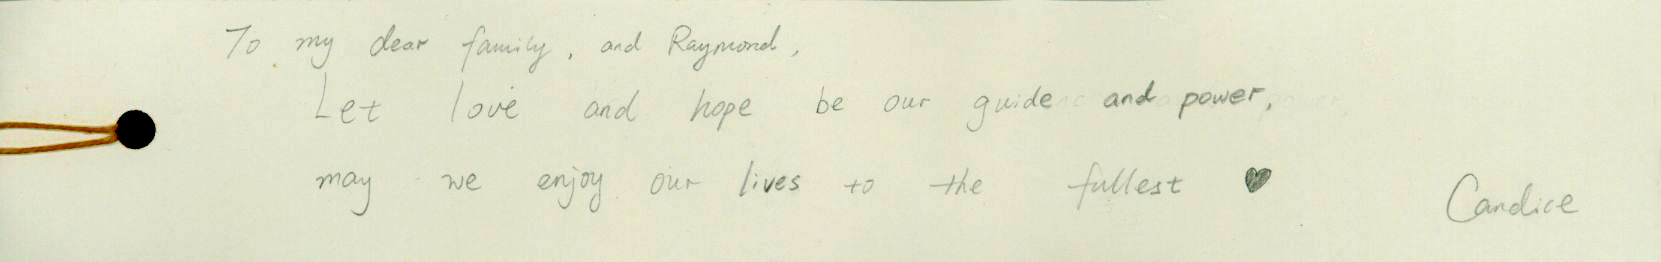 To my dear family, and Raymond,
Let love and hope be our guide and power,
may we enjoy our lives to the fullest ♥
Candice